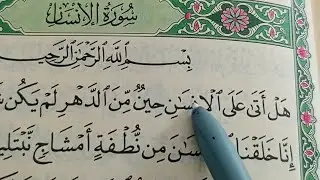 سُورَةُ الْإِنسَانِ
بِسْمِ اللَّهِ الرَّحْمَٰنِ الرَّحِيمِ
هَلْ أَتَىٰ عَلَى الْإِنسَٰنِ حِينٌ مِّنَ الدَّهْرِ لَمْ يَكُن
إِنَّا خَلَقْنَا الْإِنسَٰنَ مِن نُّطْفَةٍ أَمْشَاجٍ نَّبْتَلِي